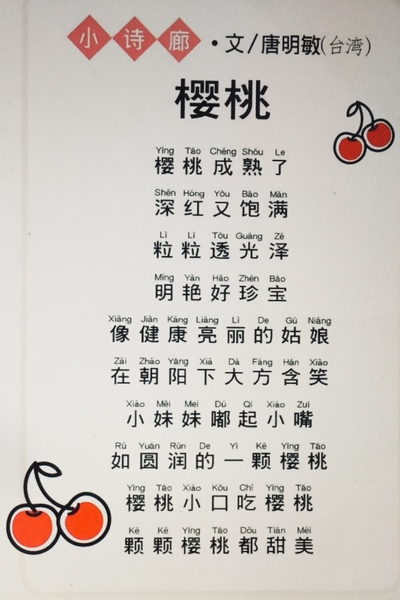 小诗廊 ·文/唐明敏(台湾)
樱桃
Yīng Táo Chéng Shóu Le
樱桃成熟了
Shēn Hóng Yòu Bǎo Mǎn
深红又饱满
Lì Lì Tòu Guāng Zé
粒粒透光泽
Míng Yàn Hǎo Zhēn Bǎo
明艳好珍宝
Xiàng Jiàn Kāng Liàng Lì De Gū Niáng
像健康亮丽的姑娘
Zài Zhāo Yáng Xià Dà Fāng Hán Xiào
在朝阳下大方含笑
Xiǎo Mèi Mei Dū Qǐ Xiǎo Zuǐ
小妹妹嘟起小嘴
Rú Yuán Rùn De Yì Kē Yīng Táo
如圆润的一颗樱桃
Yīng Táo Xiǎo Kǒu Chī Yīng Táo
樱桃小口吃樱桃
Kē Kē Yīng Táo Dōu Tián Měi
颗颗樱桃都甜美